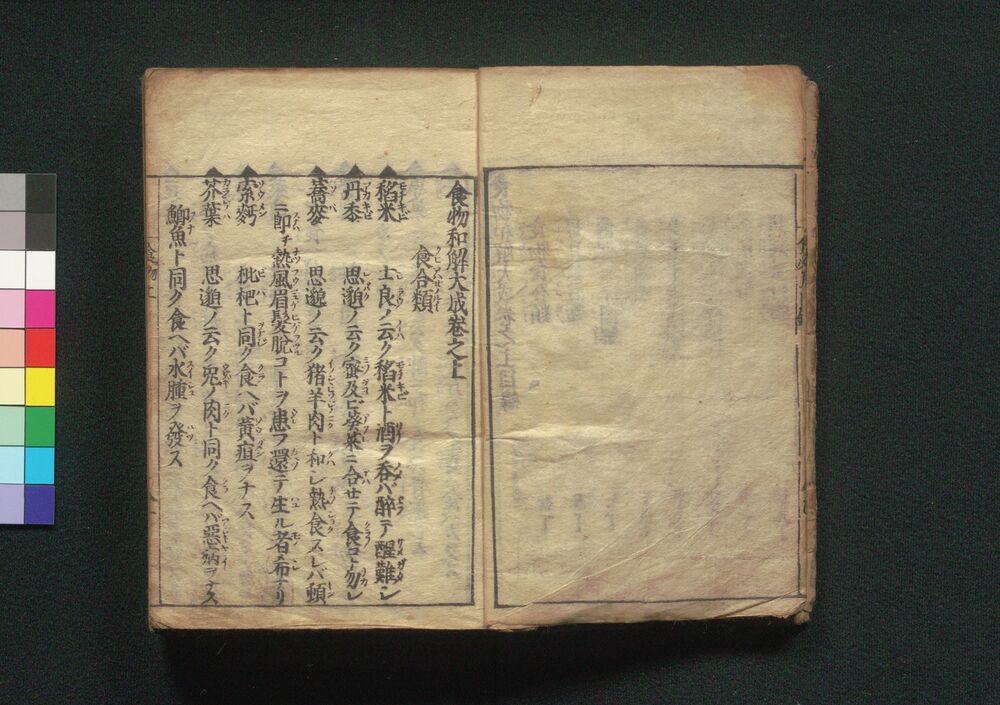 食物和解大成巻之上
食合類
稻米 士良ノ云ク稻米ト酒ヲ呑バ醉テ醒難シ
丹黍 思邈ノ云ク蜜及ビ葵菜ニ合セテ食コト勿レ
蕎麥 思邈ノ云ク猪羊肉ト和シ熱食スレバ頓
ニ即チ熱風眉髮脱コトヲ患フ還テ生ル者希ナリ
索麪 枇杷ト同ク食ヘバ黃疸ヲナス
芥葉 思邈ノ云ク兎ノ肉ト同ク食ヘバ惡病ヲナス
鯽魚ト同ク食ヘバ水腫ヲ發ス